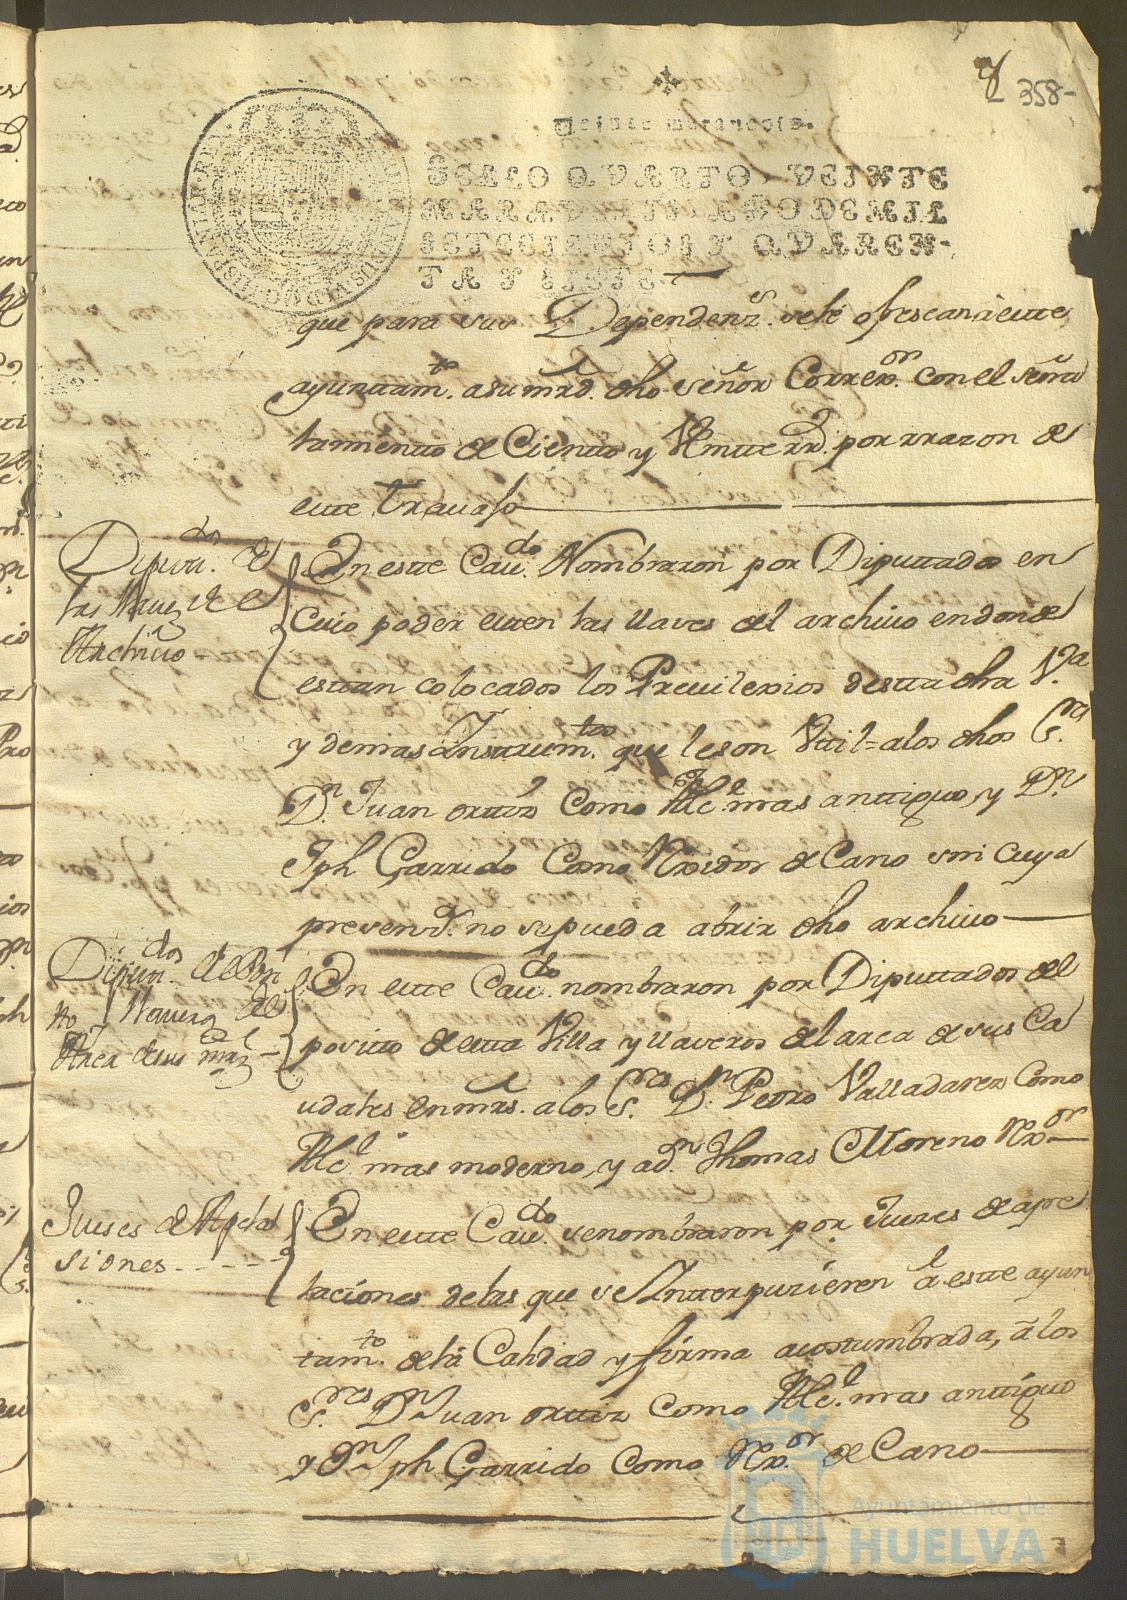 358-
Veinte maravedis.
SELLO QVARTO, VEINTE
MARAVEDIS, AÑO DE MIL
SETECIENTOS Y QVAREN-
TA Y SIETE.
que para sus Dependenz.s sele ofrescan á este
ayuntam.to a su mrd. dho señor Correx.or con el señala
tamiento de Ciento y Veinte rr.d por rrazon de
este travaso
Diputt.dos de
las llaves de el
Archivo
En estte Cav.do Nombraron por Diputtados en
Cuio poder esten las llaves del archivo en donde
esttan colocados los Previlexios destta dha V.a
y demas Insttrum.tos que le son Vtil = a los dhos S.res
D.n Juan orttiz Como Alc.e mas anttiguo, y D.n
Jph Garrido Como Rexidor de Cano sin Cuya
presenz.a no se pueda abrir dho archivo
Diputt.dos del Pósi
to y llaveros del
Arca de sus mrs
En este Cav.do nombraron por Diputtados del
posito de esta Villa y llaveros del arca de sus Ca
udales en mrs. a los S.res D.n Pedro Valladares Como
Alc.e mas moderno, y a D.n Thomas Moreno Rx.or
Juises de Apela
siones
En este Cav.do se nombraron por Jueses de ape
laciones de las que se Intterpusieren á estte ayun
tam.to de la Calidad y firma acostumbrada, á los
S.res D.n Juan orttiz Como Alc.e mas anttiguo
y D.n Jph Garrido Como Rx.or de Cano
Ayuntamiento de
HUELVA